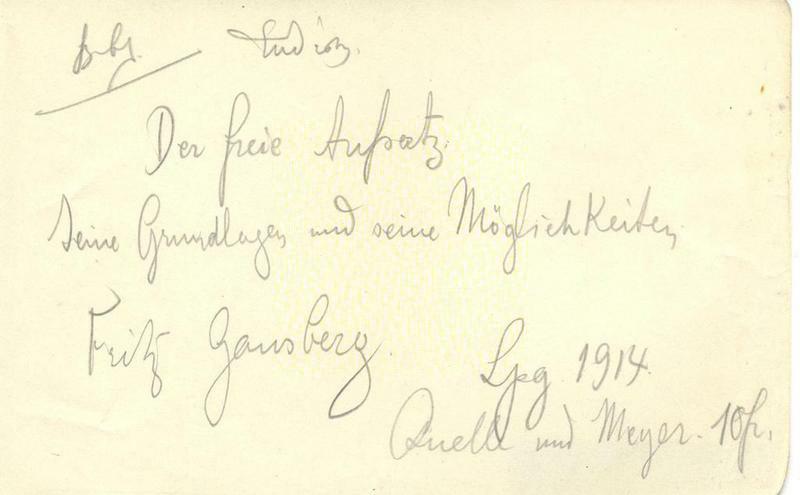 Der freie Aufsatz.
Seine Grundlagen und seine Möglichkeiten
Fritz Gansberg.
Lpg 1914.
Quelle und Meyer. 10fr.